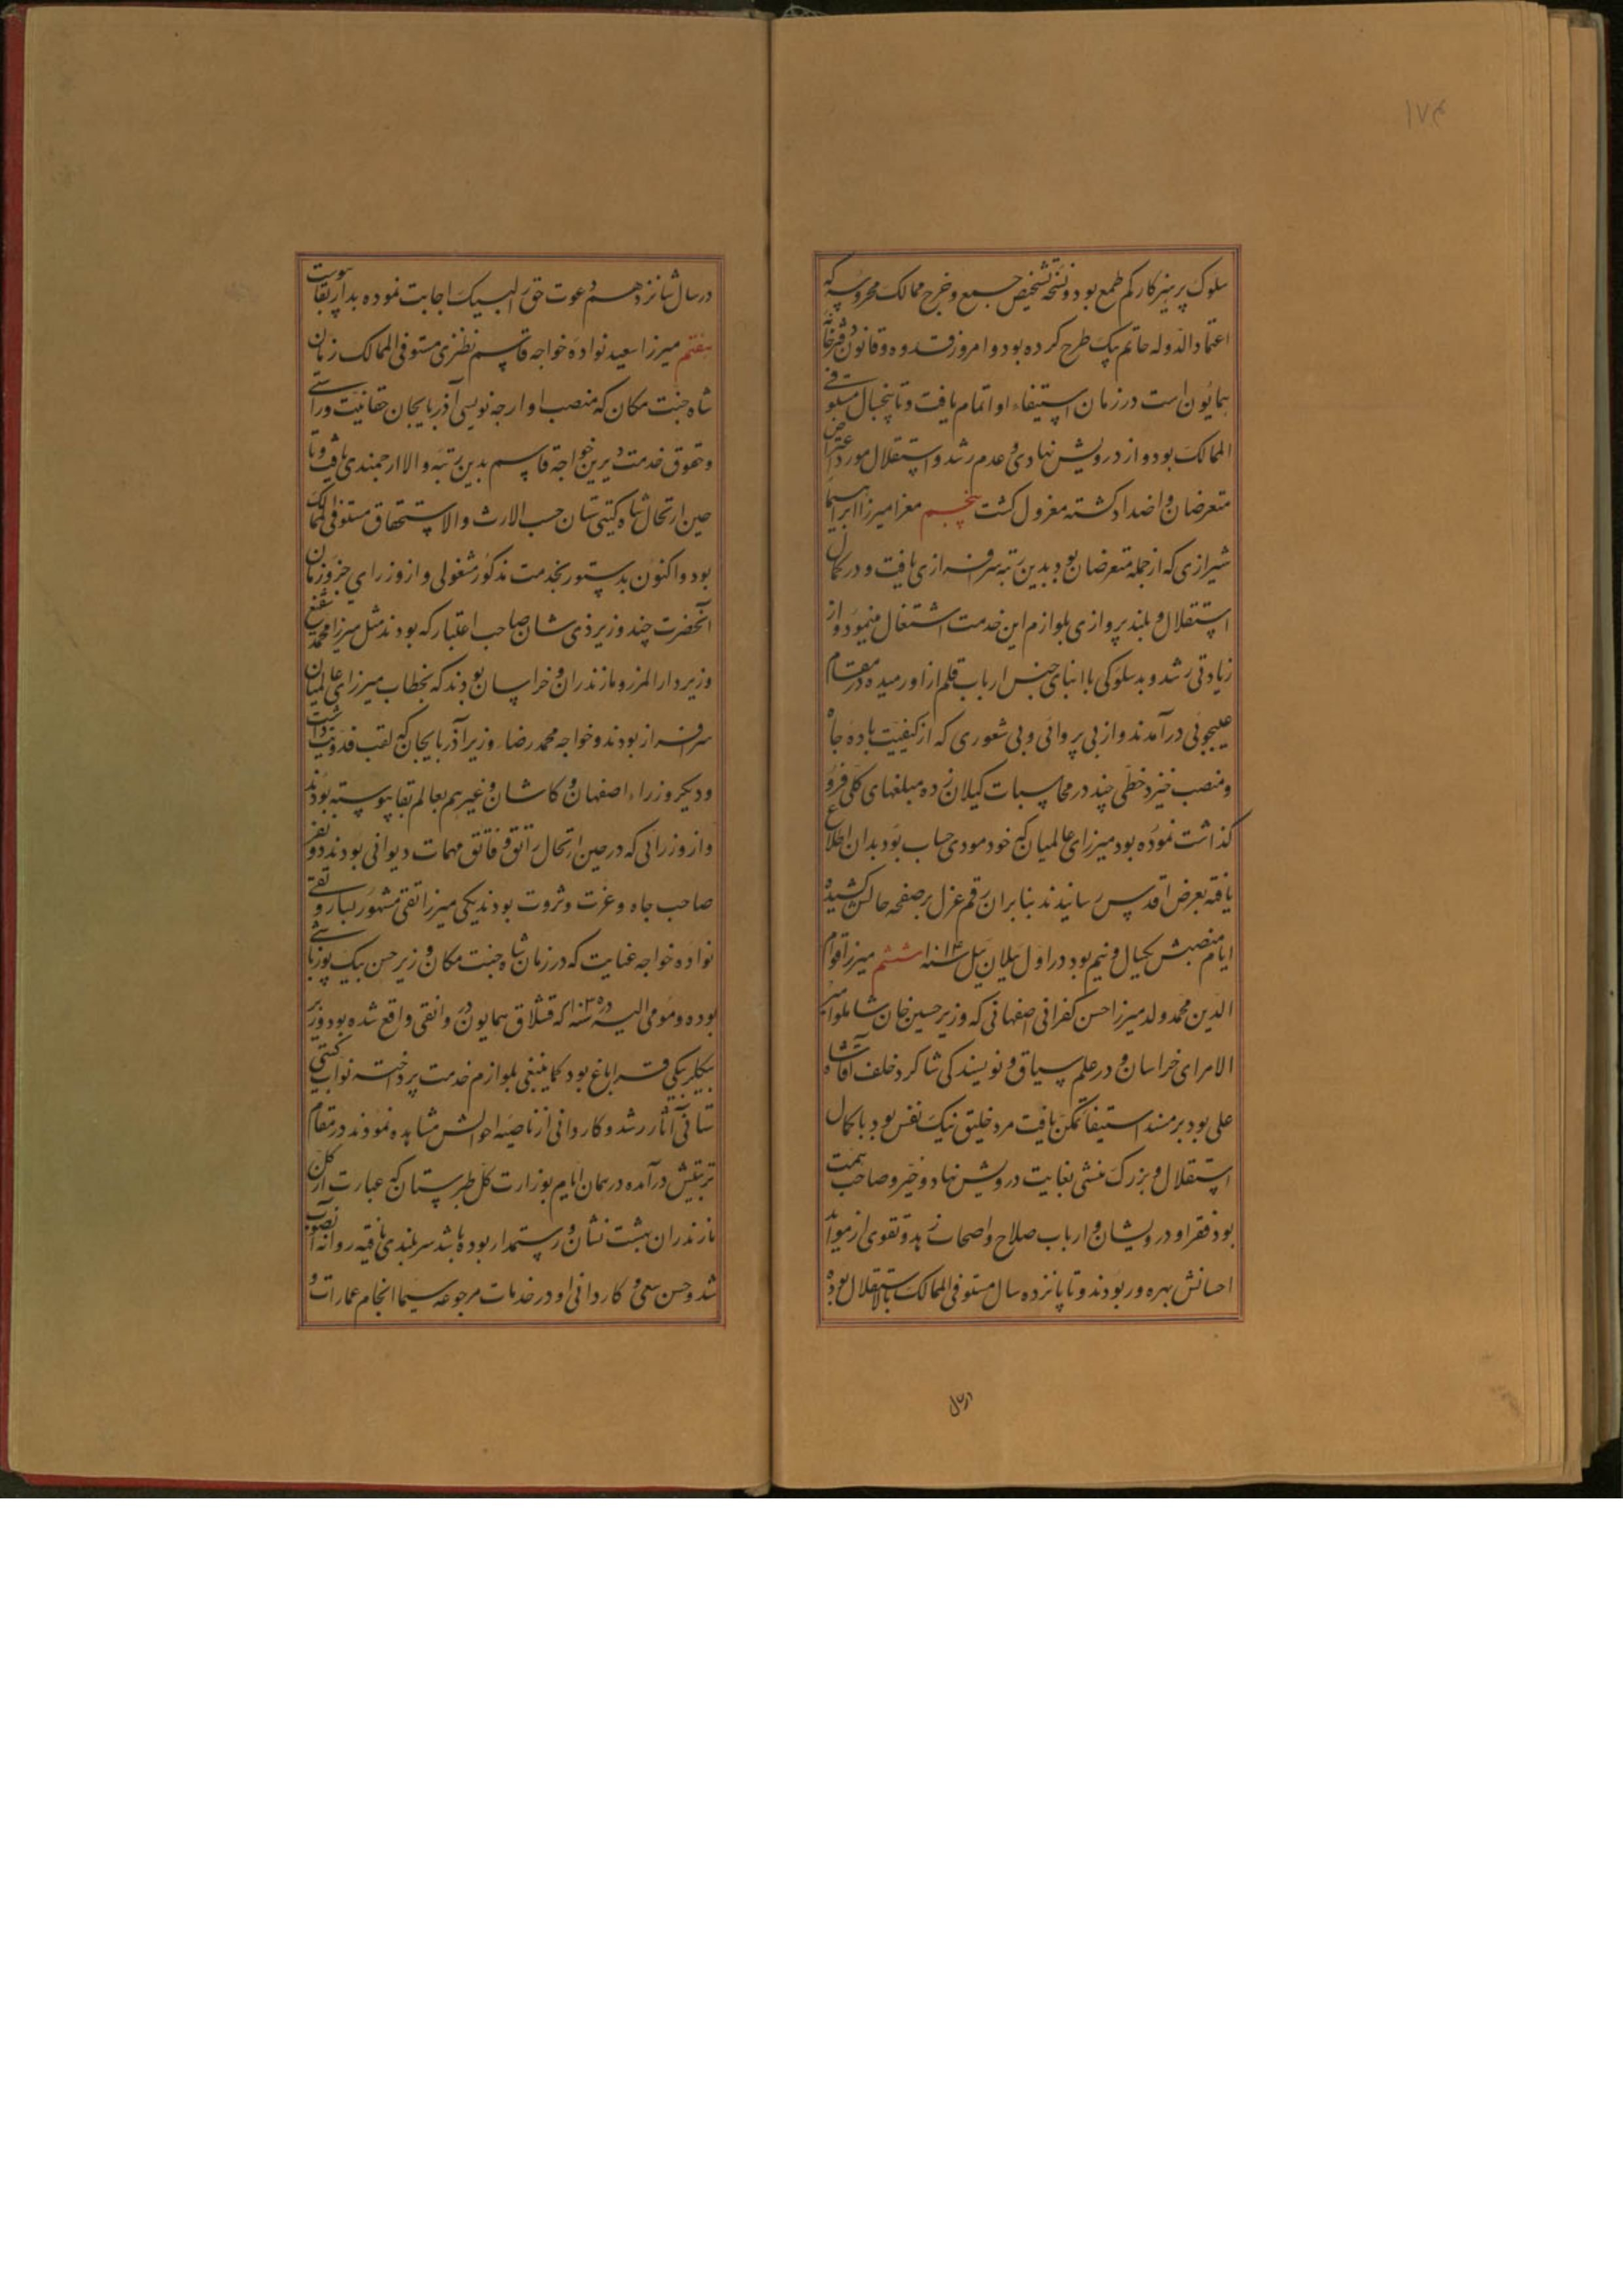 ۱۷۴
سلوک پرهیزکار کم طمع بود و نسخه تشخیص جمع و خرج ممالک محروسه که
اعتماد الدوله حاتم بیک طرح کرده بود و امروز قدوه و قانون دفترخانه
همایون است در زمان استیفاء او اتمام یافت و تا پنجسال مستوفی
الممالک بود و از درویش نهادی و عدم رشد و استقلال مورد اعتراض
متعرضان و اضداد کشته معزول کشت پنجم معزا میرزا ابراهیما
شیرازی که از جمله متعرضان بود بدین رتبه سرافرازی یافت و در کمال
استقلال و بلند پروازی بلوازم این خدمت اشتغال مینمود و از
زیادتی رشد و بد سلوکی با ابنای جنس ارباب قلم از او رمیده در مقام
عیبجوئی درآمدند و از بی پروائی و بی شعوری که از کیفیت باده جاه
و منصب خیزد خطی چند در محاسبات کیلان زده مبلغهای کلی فرو
کذاشت نموده بود میرزای عالمیان که خود مودی حساب بود بدان اطلاع
یافته بعرض اقدس رسانیدند بنابران رقم عزل بر صفحه حالش کشیده
ایام منصبش یکسال و نیم بود در اول ییلان ییل سنه ۱۰۱۴ ششم میرزا قوام
الدین محمد ولد میرزا حسن کفرانی اصفهانی که وزیر حسین خان شاملو امیر
الامرای خراسان و در علم سیاق و نویسندکی شاکرد خلف آقا شاه
علی بود بر مسند استیفا تمکن یافت مرد خلیق نیک نفس بود با کمال
استقلال و بزرک منشی بغایت درویش نهاد و خیر و صاحب همت
بود فقرا و درویشان و ارباب صلاح و اصحاب زهد و تقوی از موائد
احسانش بهره ور بودند و تا پانزده سال مستوفی الممالک بالاستقلال بوده
در سال
در سال شانزدهم دعوت حق را لبیک اجابت نموده بدار بقا پیوست
هفتم میرزا سعید نواده خواجه قاسم نطنزی مستوفی الممالک زمان
شاه جنت مکان که منصب اوارجه نویسی آذربایجان حقانیت و راستی
و حقوق خدمت دیرین خواجه قاسم بدین رتبه والا ارجمندی یافت و تا
حین ارتحال شاه کیتی ستان حسب الارث والاستحقاق مستوفی الممالک
بود و اکنون بدستور بخدمت مذکور مشغولی و از وزرای جزو زمان
آنحضرت چند وزیر ذی شان صاحب اعتبار که بودند مثل میرزا محمد شفیع
وزیر دارالمرز و مازندران و خراسان بودند که بخطاب میرزای عالمیان
سرافراز بودند و خواجه محمد رضا وزیر آذربایجان که لقب فدویت داشت
و دیکر وزراء اصفهان و کاشان و غیرهم بعالم بقا پیوسته بودند
و از وزرائی که در حین ارتحال راتق و فاتق مهمات دیوانی بودند دو نفر
صاحب جاه و عزت و ثروت بودند یکی میرزا تقی مشهور بسارو تقی
نواده خواجه عنایت که در زمان شاه جنت مکان وزیر حسن بیک یوزباشی
بوده و مومی الیه در سنه ۱۰۲۵ که قشلاق همایون در وانقی واقع شده بود وزیر
بیکلربیکی قراباغ بود کماینبغی بلوازم خدمت پرداخته نواب کیتی
ستانی آثار رشد و کاردانی از ناصیه احوالش مشاهده نمودند در مقام
تربیتش درآمده در همان ایام بوزارت کل طبرستان که عبارت از کل
مازندران بهشت نشان و رستمدار بوده باشد سربلندی یافته روانه آنصوب
شد و حسن سعی و کاردانی او در خدمات مرجوعه سیما انجام عمارات و